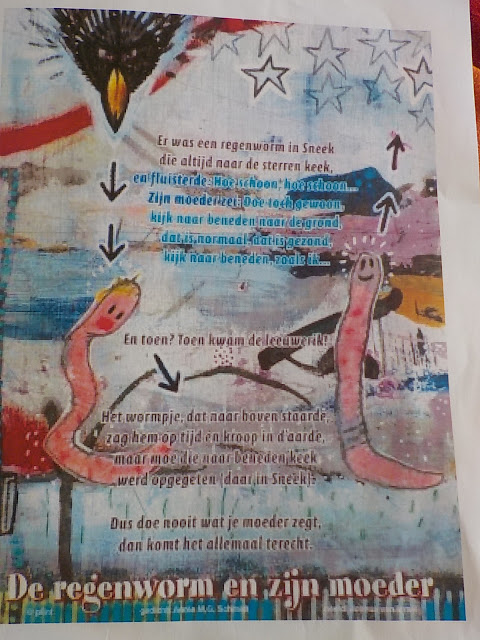 Er was een regenworm in Sneek
die altijd naar de sterren keek,
en fluisterde: Hoe schoon, hoe schoon...
Zijn moeder zei: Doe toch gewoon,
kijk naar beneden naar de grond,
dat is normaal, dat is gezond,
kijk naar beneden, zoals ik...
En toen? Toen kwam de leeuwerik!
Het wormpje, dat naar boven staarde,
zag hem op tijd en kroop in d'aarde,
maar moe die naar beneden keek
werd opgegeten (daar in Sneek).
Dus doe nooit wat je moeder zegt,
dan komt het allemaal terecht.
De regenworm en zijn moeder
plint
gedicht: Annie M.G. Schmidt